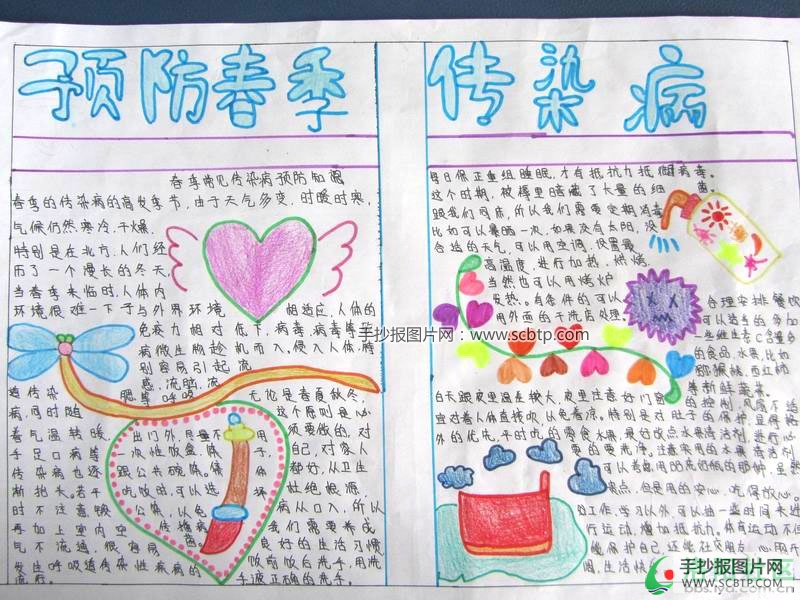 预防春季
传染病
春季常见传染病预防知识
春季的传染病的高发季节，由于天气多变，时暖时寒，
气候仍然寒冷，干燥，
特别是在北方，人们经
历了一个漫长的冬天，
当春季来临时，人体内
环境很难一下子与外界环境 相适应，人体的
免疫力相对低下，病毒，病毒等
病微生物趁机而入，侵入人体，特
别容易引起流
感，流脑，流
遗传染 腮 呼吸 无论是春夏秋冬，
病，同时随 这个原则是必
着气温转暖， 出门外，尽量不用 须要做的，对
手足口病等 一次性饭盒，筷子 自己，对家人
传染病也逐 跟公共碗筷。 都好，从卫生
渐抬头。若平 吃饭时，可以选 杜绝根源，
时不注意锻 公筷，以免 病从口入，所以
再加上室内空 传播病 我们需要养成
气不流通，很容易 菌。 良好的生活习惯
发生呼吸道传染性疾病的 饭前饭后洗手，用洗
流行。 手液正确的洗手。
每日保正重组睡眠，才有抵抗力抵御病毒。
这个时期，被褥里暗藏了大量的细菌。
跟我们同床，所以我们需要定期消毒
比如可以暴晒一次，如果没有太阳，没
合适的天气，可以用空调，设置最
高温度，进行加热，烘烤。
当然也可以用烤炉
发热。有条件的可以 合理安排餐饮
用外面的干洗店处理。 可以适当的多加
一些维生素C含量多
的食品，水果，比如
猕猴桃，西红柿
等新鲜蔬菜。
白天跟夜里温差较大，夜里注意好门窗的控制，风扇不适
宜对着人体直接吹，以免着凉。特别是对肚子的保护，显得格
外的优先，平时吃的零食水果，最好改点水果清洁剂，进行必
要的零洗净。注意采用的水果清洁剂
可以考虑用
点，但是用的安心，吃得放心。
的工作，学习以外，可以抽一些时间来进
行运动，增加抵抗力。体育运动不但
能保护自己，还能社交朋友，心雨开
阔，生活快
手抄报图片网：www.scbtp.com
手抄报图片网
WWW.SCBTP.COM
bbs.iya.com.cn